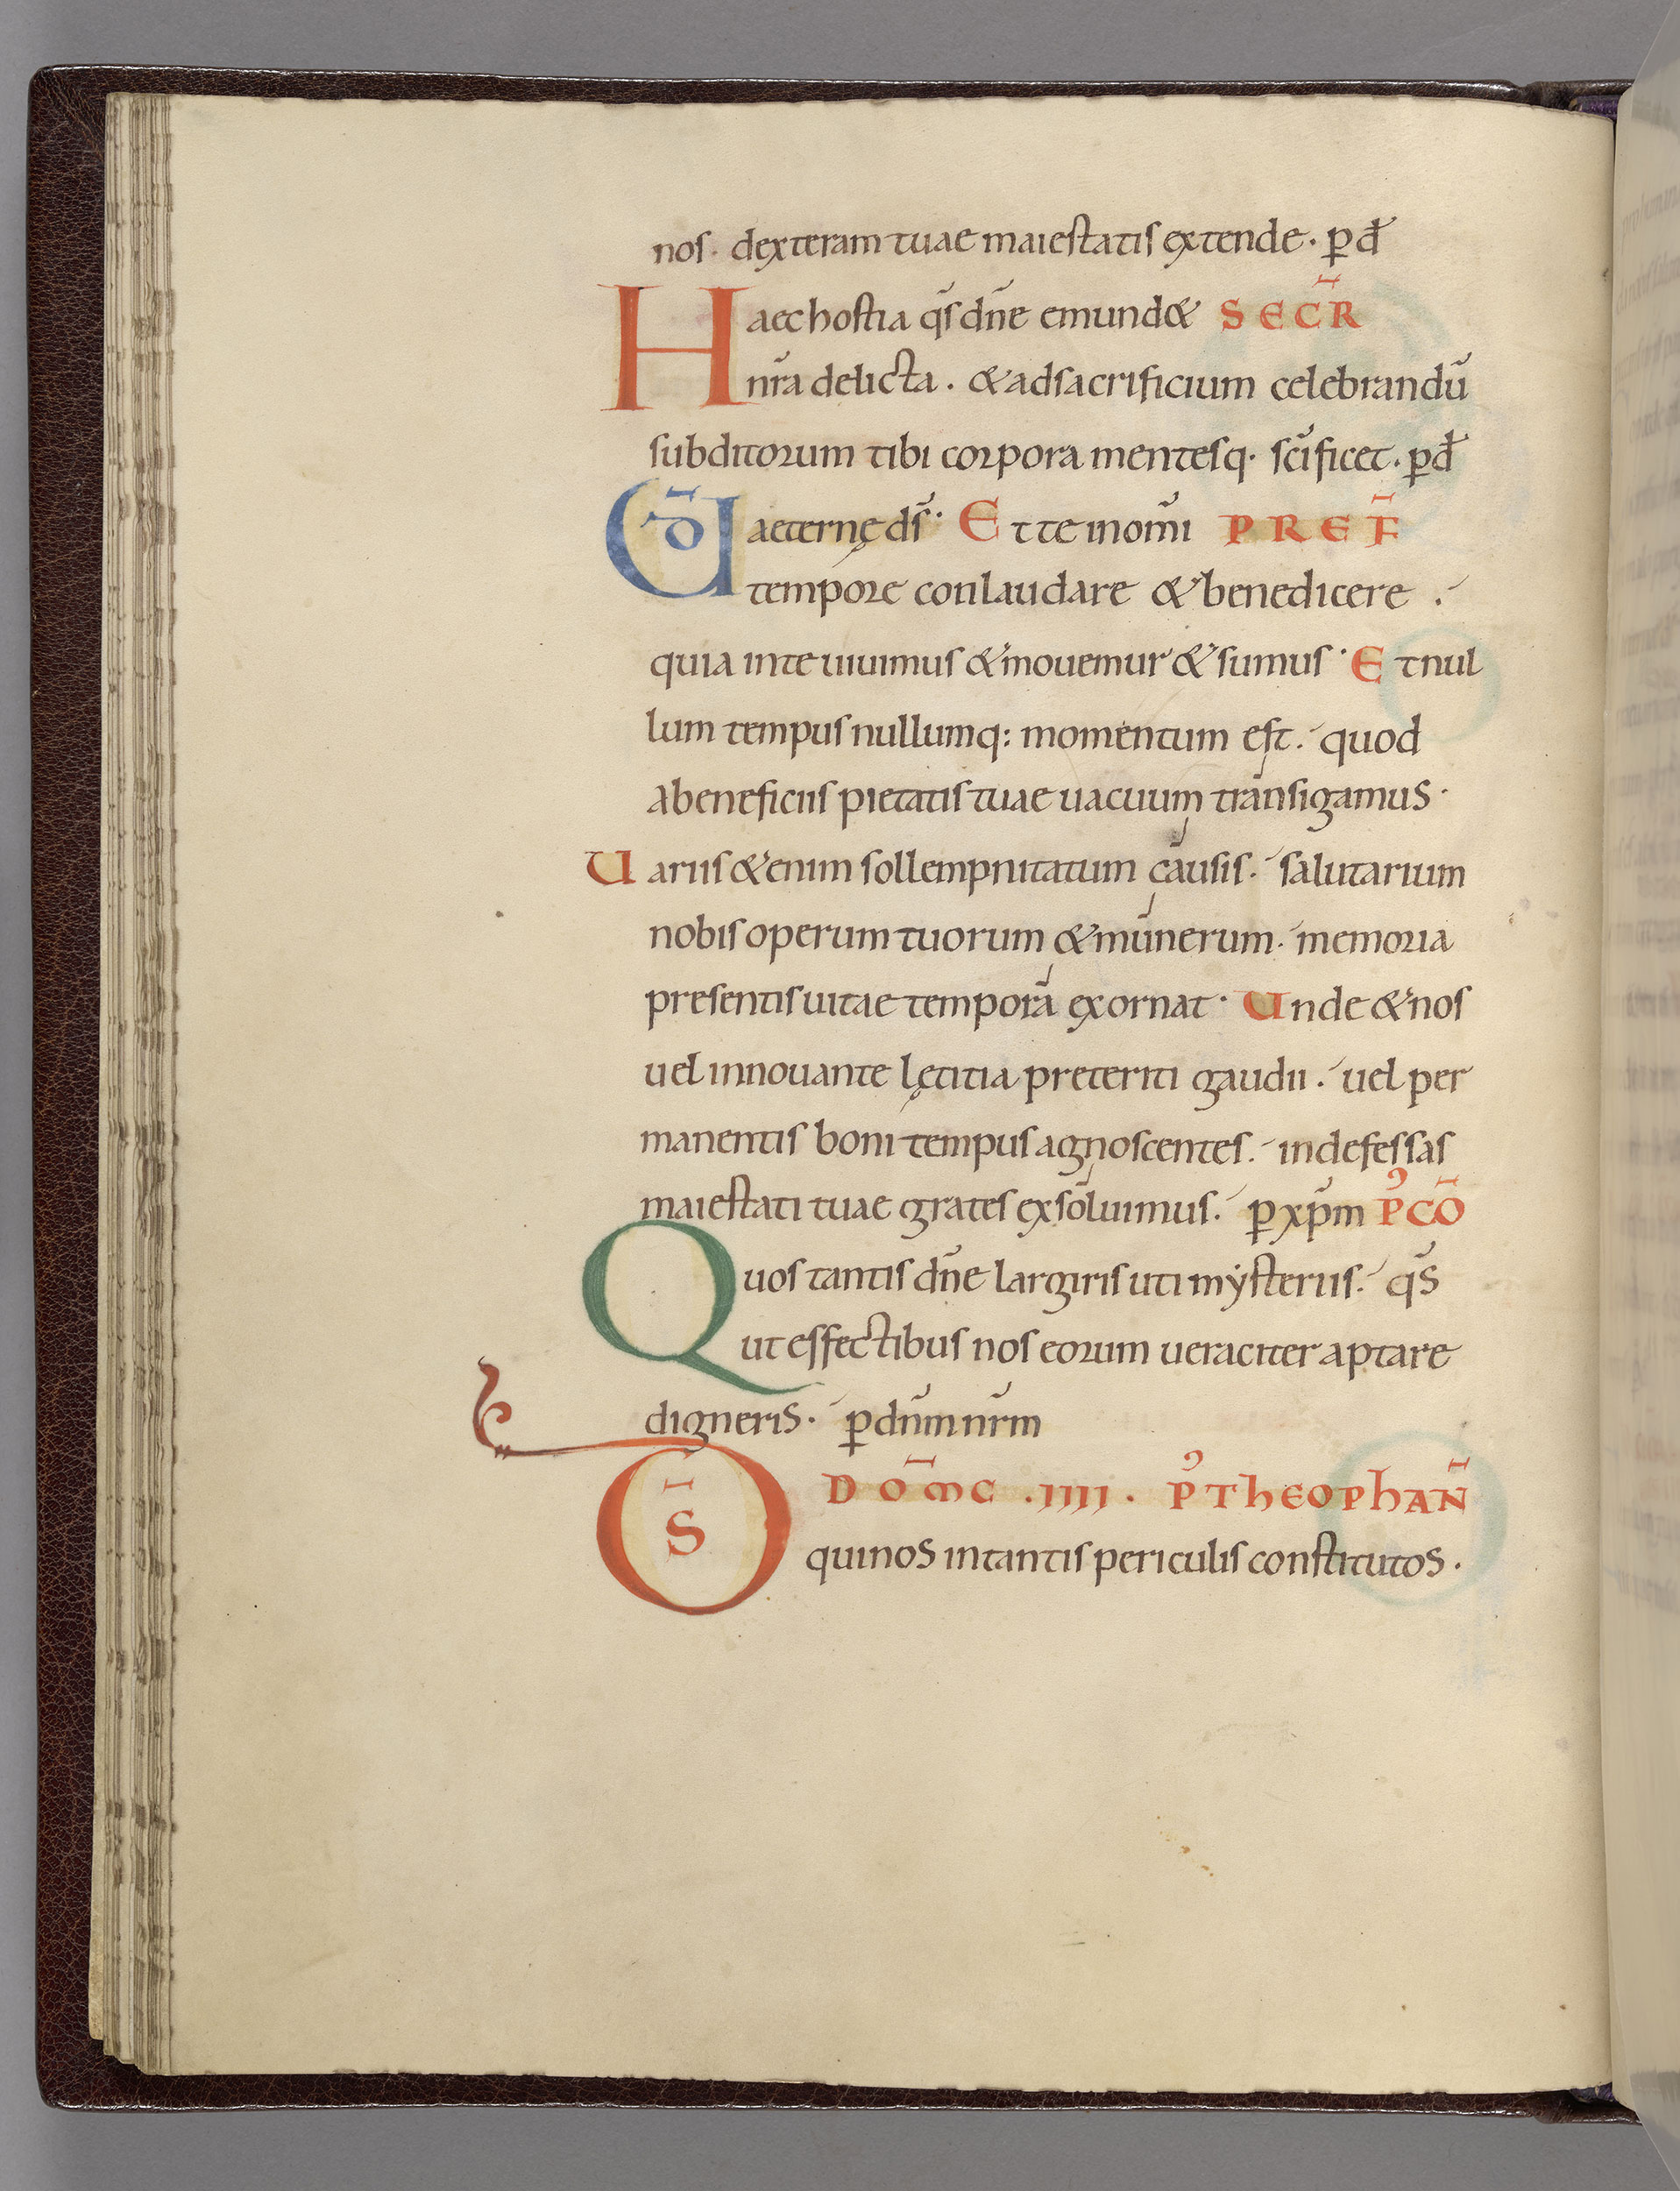 nos. dexteram tuae maiestatis extende. p̲ d̄
Haec hostia q̄s dn̄e emund& SECR̄
nr̄a delicta. & ad sacrificium celebrandū
subditorum tibi corpora mentesq. sc̄ificet. p̲ d̄
UD̄ aeternę ds̄. Et te in om̄i PREF̄
tempore conlaudare & benedicere.
quia in te uiuimus & mouemur & sumus. Et nul
lum tempus nullumq: momentum est. quod
a beneficiis pietatis tuae uacuum transigamus.
Uariis &enim sollempnitatum causis. salutarium
nobis operum tuorum & munerum. memoria
presentis uitae tempora exornat. Unde & nos
uel innouante lętitia preteriti gaudii. uel per
manentis boni tempus agnoscentes. indefessas
maiestati tuae grates exsoluimus. p̲ xp̄m P̾ CŌ
Quos tantis dn̄e largiris uti mẏsteriis. q̄s
ut effectibus nos eorum ueraciter aptare
digneris. p̲ dn̄m nr̄m
DOM̄C .IIII. P̾ THEOPHAN̄
DS̄ qui nos in tantis periculis constitutos.